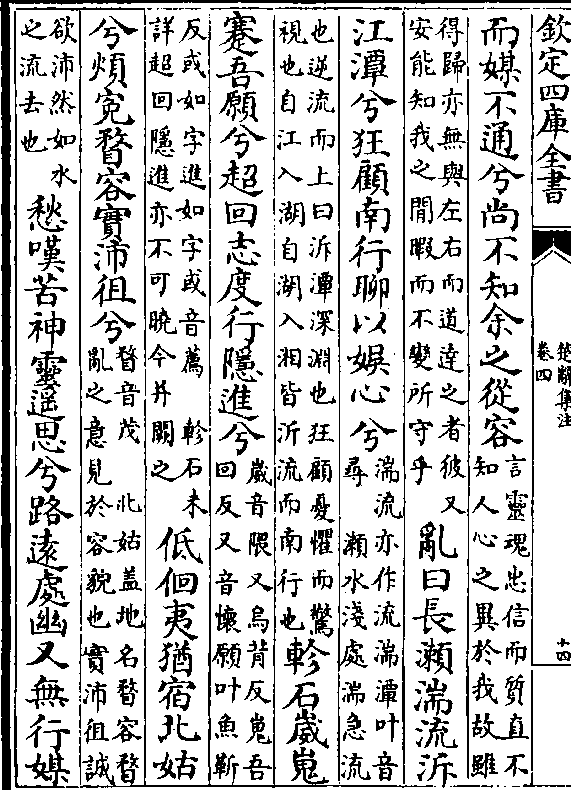 欽定四庫全書
楚辭集注
卷四
十四
而媒不通兮尚不知余之從容
言靈魂忠信而質直不
知人心之異於我故雖
得歸亦無與左右而道達之者彼又
安能知我之閒暇而不變所守乎
亂曰長瀨湍流泝
江潭兮狂顧南行聊以娱心兮
湍流亦作流湍潭叶音
尋 瀨水淺處湍急流
也逆流而上曰泝潭深淵也狂顧憂懼而驚
視也自江入湖自湖入湘皆泝流而南行也
軫石崴嵬
蹇吾願兮超回志度行隱進兮
崴音隈又烏背反嵬吾
回反又音懷願叶魚靳
反或如字進如字或音薦 軫石未
詳超回隱進亦不可曉今并闕之
低佪夷猶宿北姑
兮煩寃瞀容實沛徂兮
瞀音茂 北姑盖地名瞀容瞀
亂之意見於容貌也實沛徂誠
欲沛然如水
之流去也
愁嘆苦神靈遥思兮路遠處幽又無行媒